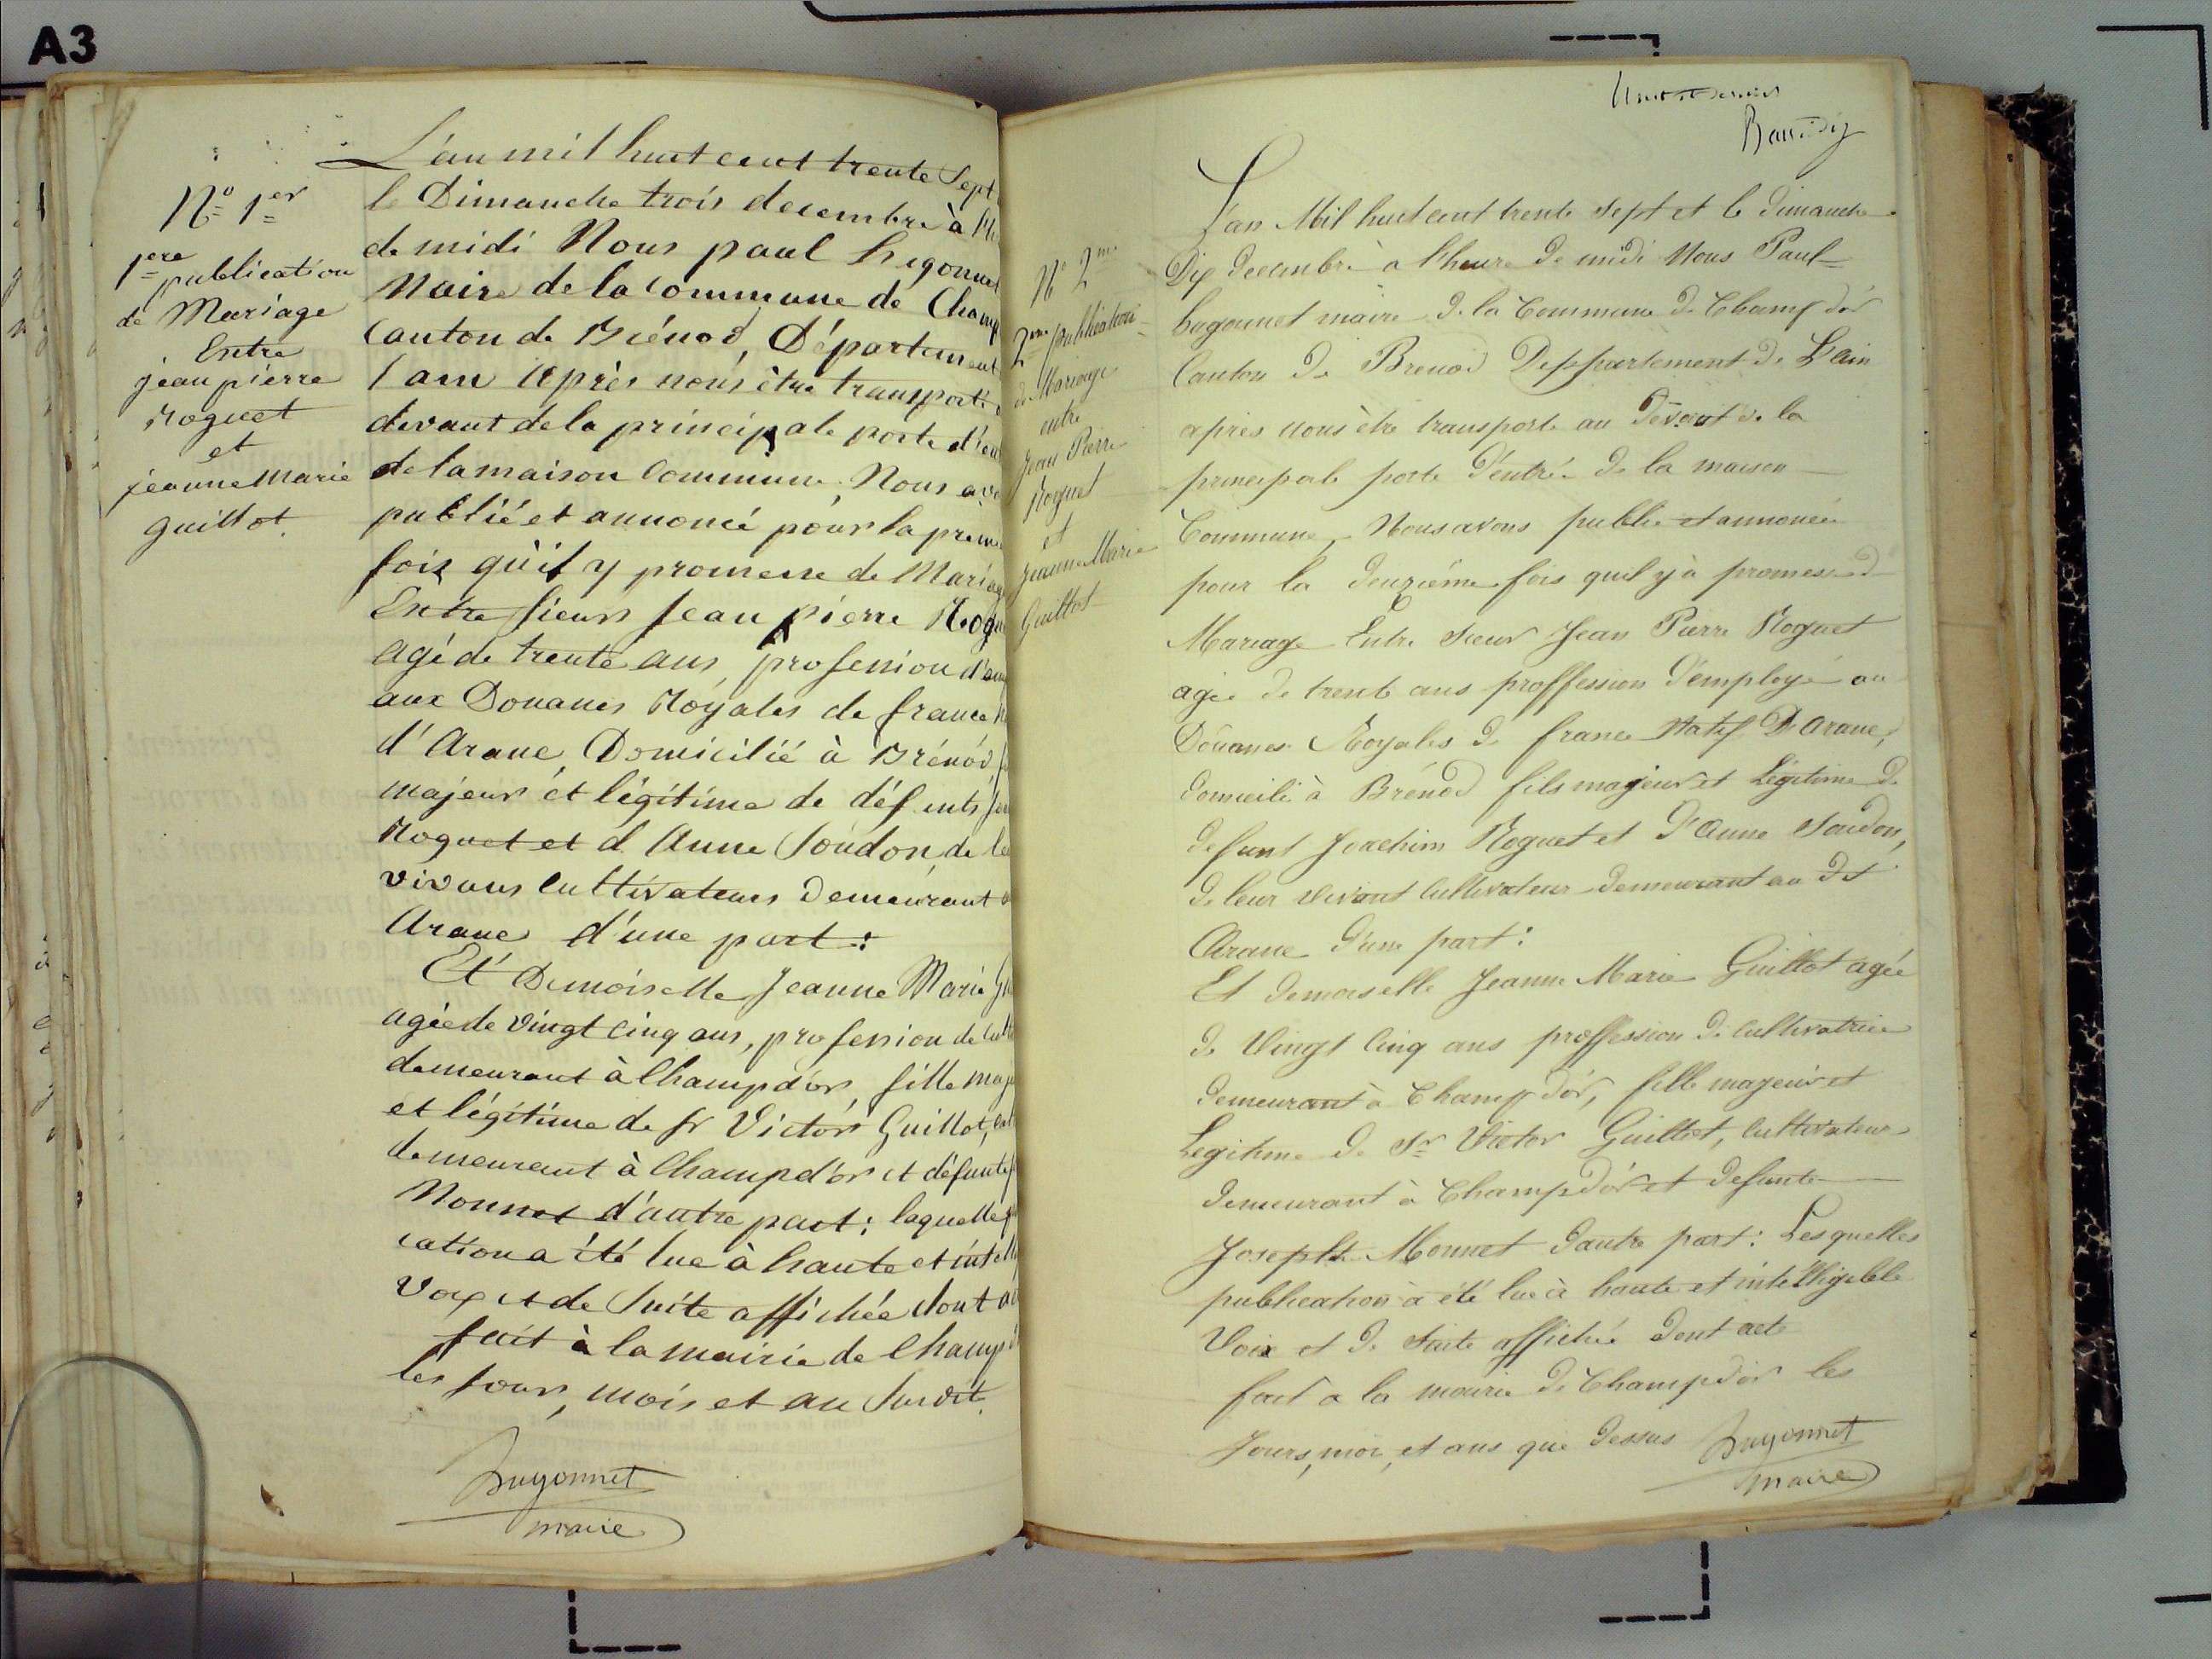 A3
N° 1er
1ere publication
de Mariage
Entre
jean pierre
Roguet
et
jeanne Marie
guillot.
L'an mil huit cent trente Sept
le Dimanche trois decembre à l'h
de midi Nous paul
Maire de la Commune de Champ
Canton de Brénod, Département
l'ain Après nous être transporté
devant de la principale porte d'en
de la maison Commune, Nous avo
publié et annoncé pour la premi
fois qu'il y promesse de Mariag
Entre sieur Jean pierre Rogu
agé de trente ans, profession d'em
aux Douanes Royales de france
d'Arane, Domicilié à Brénod,
majeur et légitime de défunts
Roguet et d'Anne Soudon, de le
vivans Cultivateurs Demeurant
Arane d'une part:
Et Demoiselle Jeanne Marie Gu
agée de vingt cinq ans, profession de Cult
demeurant à Champdor, fille maj
et légitime de Sr Victor Guillot,
demeurant à Champd'or et défunte
Monnet d'autre part; laquelle
cation a été lue à haute et intell
Voix et de Suite affichée dont
fait à la mairie de Champd
les jour, mois et an Susdit.
Hugonnet
maire
N° 2me
2me publication
de Mariage
entre
Jean Pierre
Roguet
et
Jeanne Marie
Guillot
L'an Mil huit cent trente Sept et le dimanche
Dix decembre à l'heure de midi Nous Paul
hugonnet maire de la Commune de Champ dor
Canton de Brenod Deppartement de L'ain
après nous être transporté au devant de la
principale porte d'entrée de la maison
Commune, Nous avons publié et annoncée
pour la deuxiéme fois quil y à promesse de
Mariage Entre Sieur Jean Pierre Roguet
agée de trente ans proffession d'employé au
Douanes Royales de france Natif D'Arane,
domicilié à Brénod fils majeur et Légitime de
defunt Joachim Roguet et D'Anne Soudon,
de leur vivant Cultivateur demeurant au dit
Arane d'une part:
Et demoiselle Jeanne Marie Guillot agée
de Vingt Cinq ans proffession de Cultivatrice
demeurant à Champ d'or, fille majeur et
Legitime de Sr Victor Guillot, Cultivateur
demeurant à Champd'or et defunte
Josephte Monnet d'autre part: Lesquelles
publication à été lue à haute et intelligible
Voix et de Suite affichée dont acte
fait a la mairie de Champd'or les
Jours, moi, et ans que dessus Hugonnet
maire